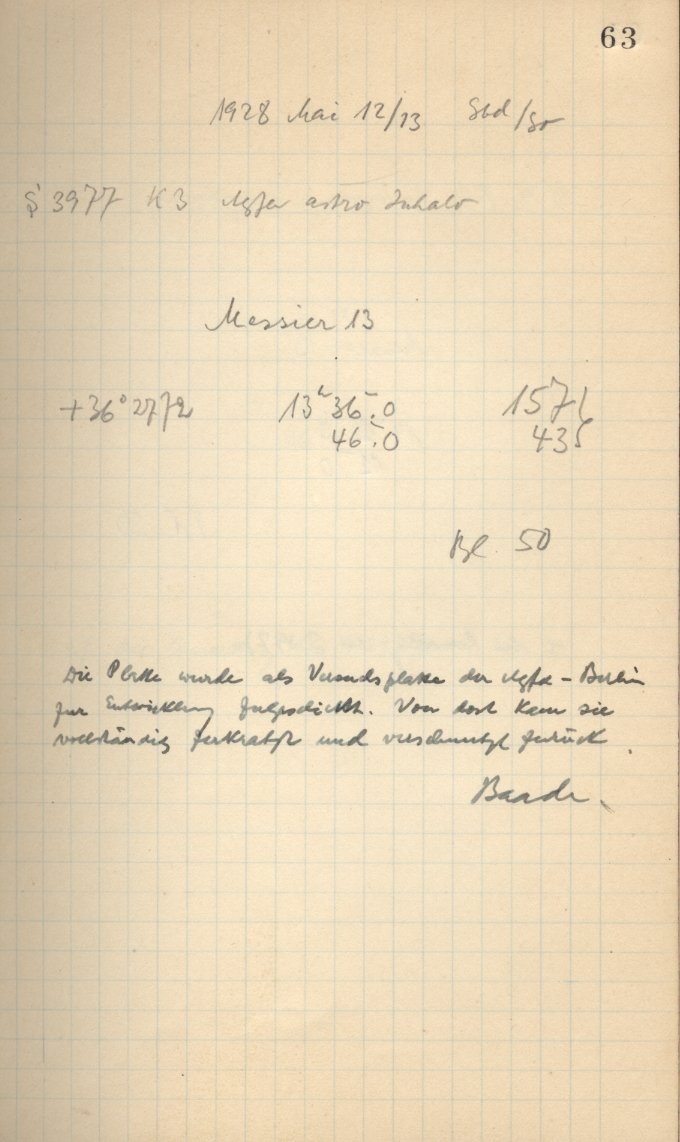 63
1928 Mai 12/13
S 3977 K3 Agfa astro
Messier 13
+36° 2772 13h 36.0 157
46.0 43
Bl. 50
Die Platte wurde als Versuchsplatte der Agfa-Berlin
zur Entwicklung zugeschickt. Von dort kam sie
vollständig zerkratzt und verschmutzt zurück.
Baade.